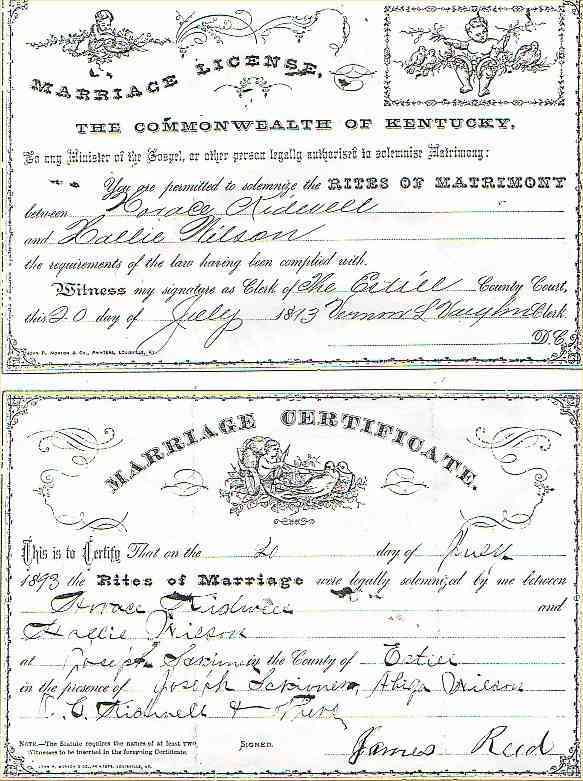 MARRIAGE LICENSE,
THE COMMONWEALTH OF KENTUCKY,
To any Minister of the Gospel, or other person legally authorised to solemnise Matrimony:
You are permitted to solemnize the RITES OF MATRIMONY
between Horace Kidwell
and Hallie Wilson
the requirements of the law having been complied with.
Witness my signature as Clerk of The Estill County Court,
this 20 day of July 1893 Vernon L Vaughn Clerk
D.C.
JOHN P. MORTON & CO., PRINTERS, LOUISVILLE, KY.
MARRIAGE CERTIFICATE.
This is to Certify That on the 20 day of July
1893 the Rites of Marriage were legally solemnized by me between
Horace Kidwell and
Hallie Wilson
at Joseph in the County of Estill
in the presence of Joseph Wilson
C. Kidwell &
NOTE.—The Statute requires the names of at least TWO
Witnesses to be inserted in the foregoing Certificate.
SIGNED.
James Reed
JOHN P. MORTON & CO., PRINTERS, LOUISVILLE, KY.